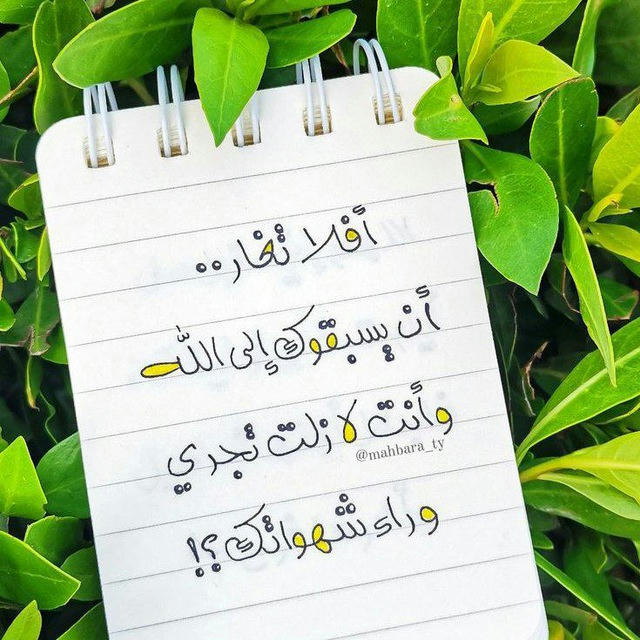 أفلا تغار..
أن يسبقوك إلى الله
وأنت لا زلت تجري
@mahbara_ty
وراء شهواتك ؟!